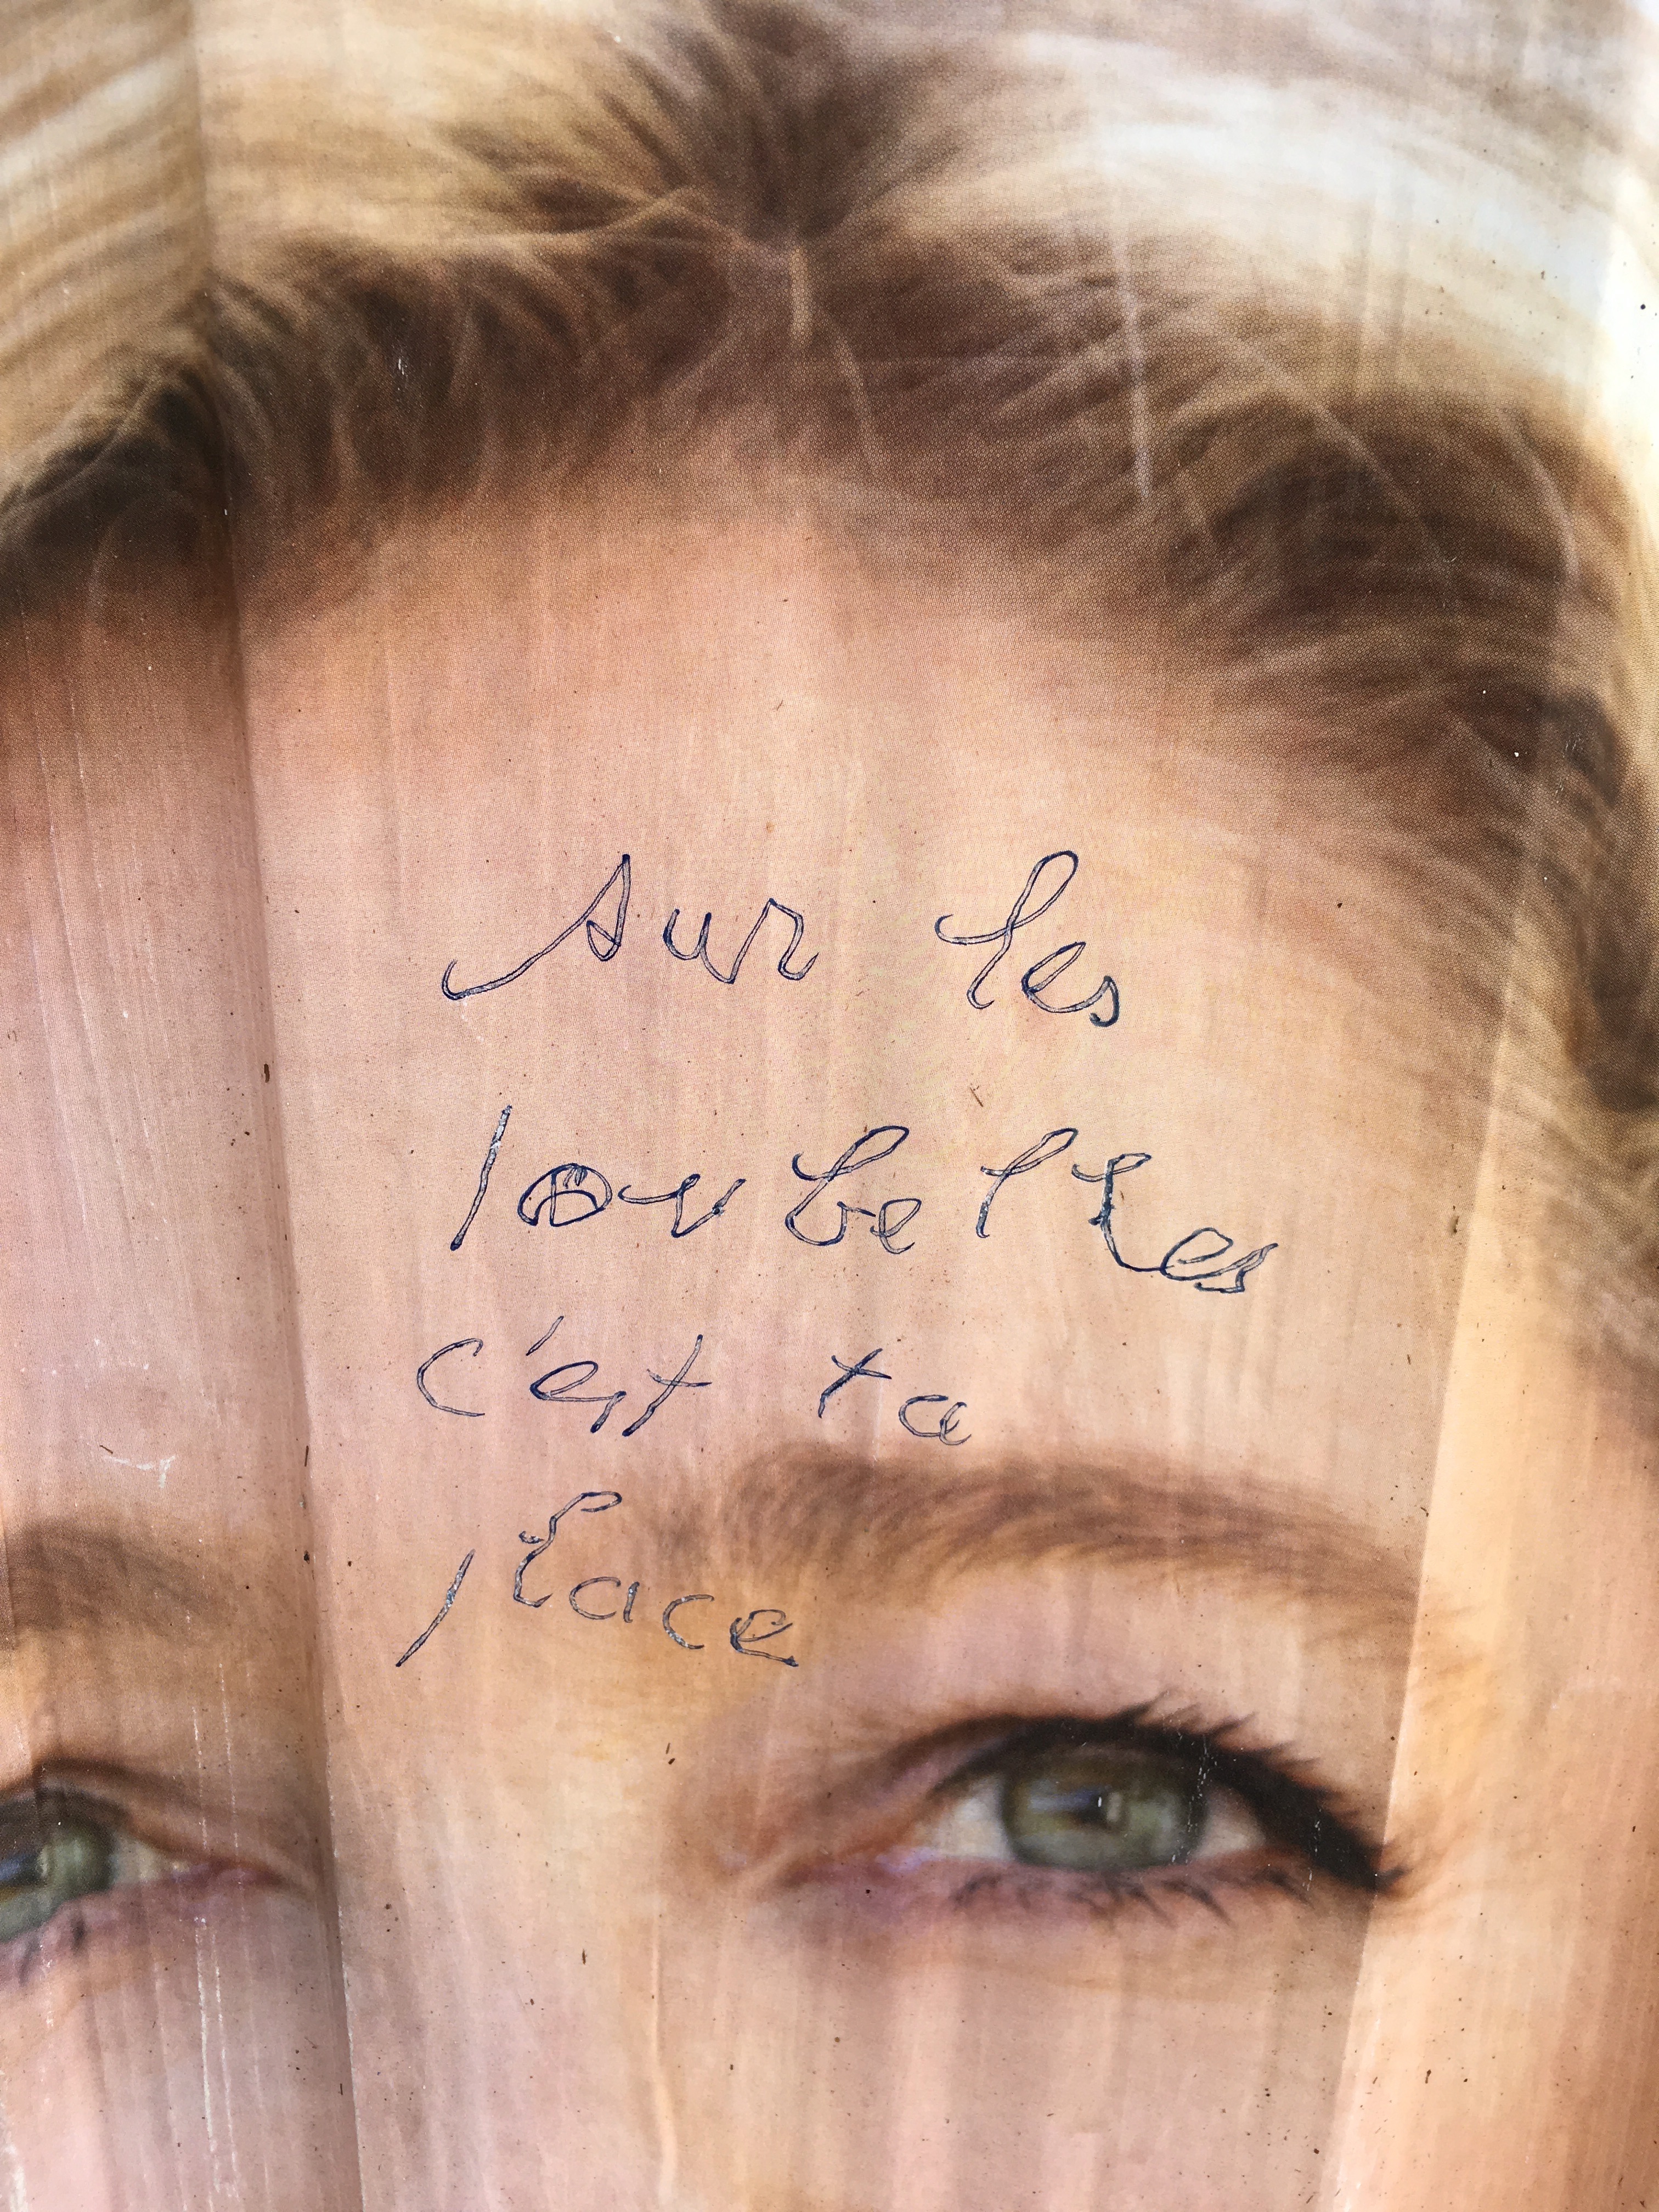 sur les
poubelles
c'est ta
place